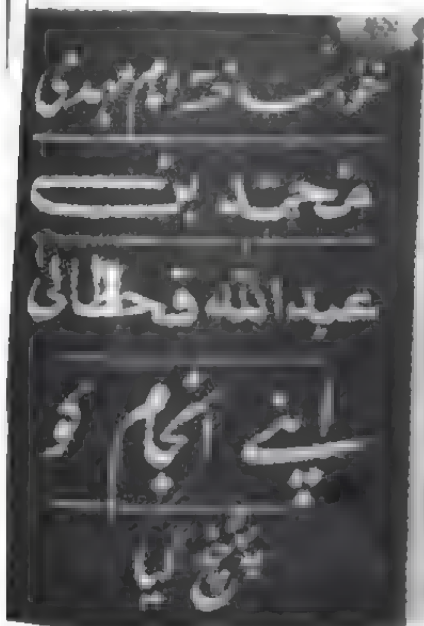 محمد بن
عبداللہ قحطانی
اپنے انجام کو
پہنچ گیا